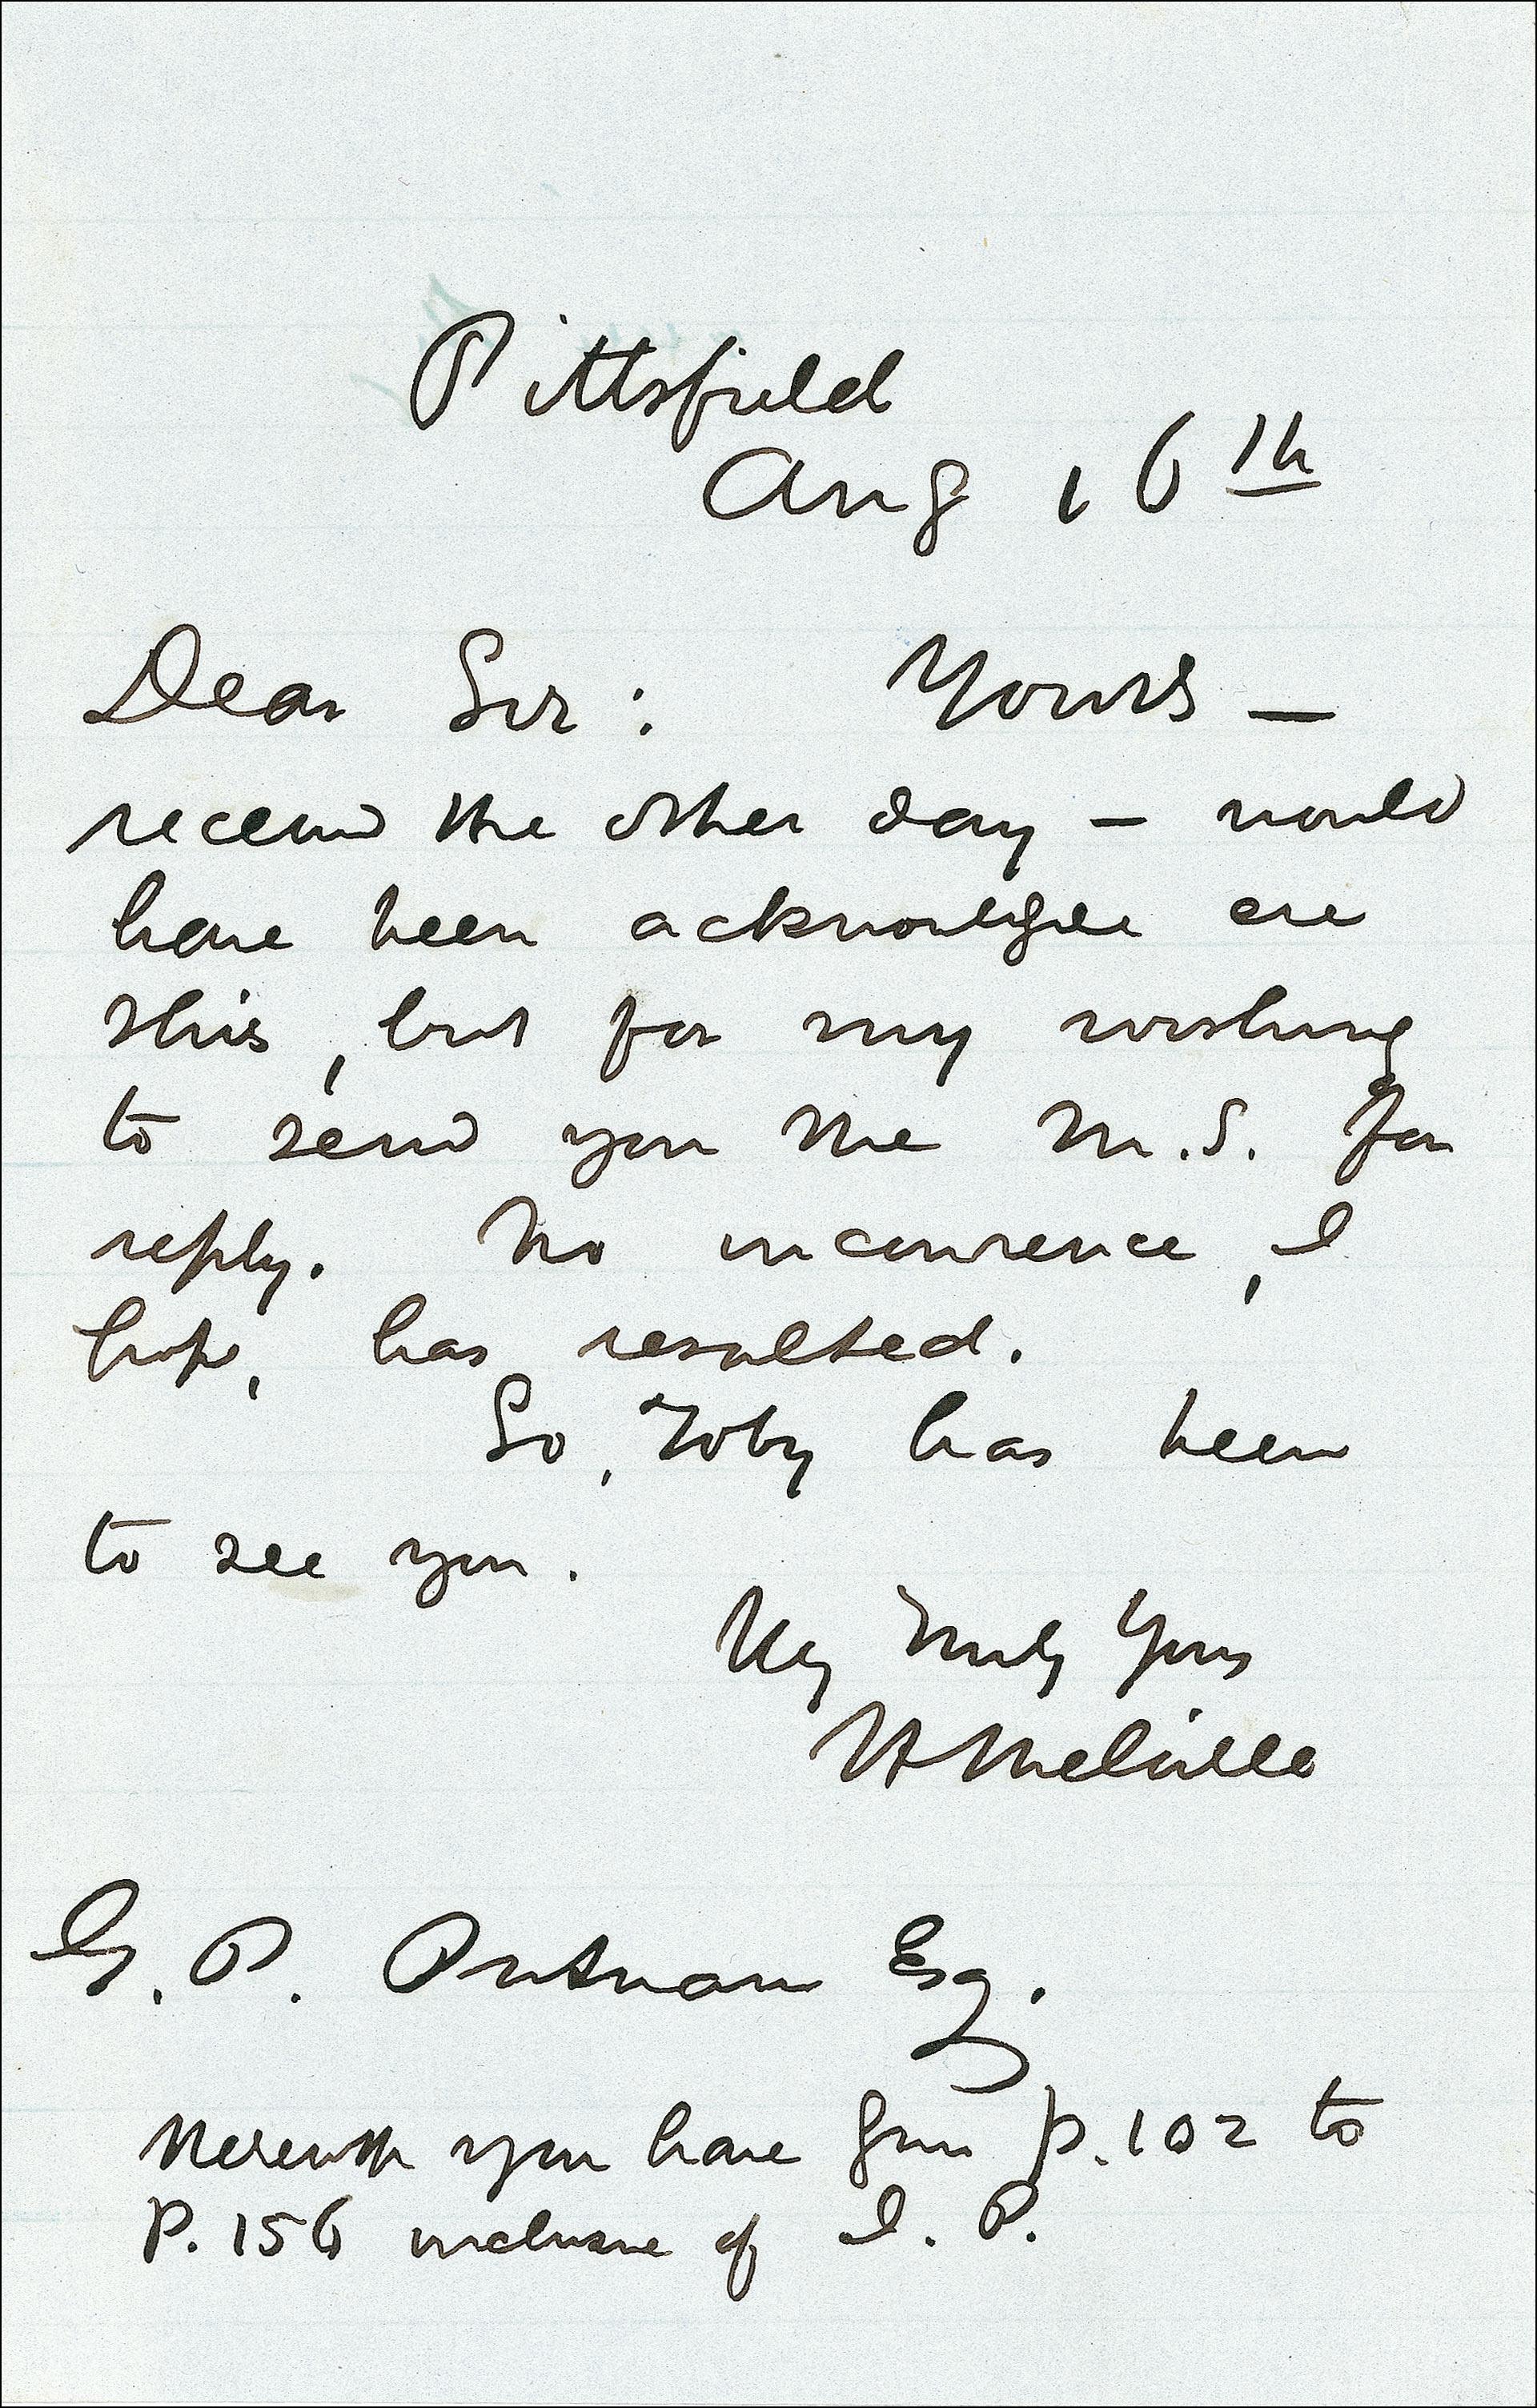 Pittsfield
Aug 16th
Dear Sir: Yours —
received the other day — would
have been acknowledged ere
this, but for my wishing
to send you the M.S. for
reply. No inconvenience, I
hope, has resulted.
So, Toby has been
to see you.
Very Truly Yours
H Melville
G. P. Putnam Esq.
Herewith you have from p. 102 to
P. 156 inclusive of I. P.